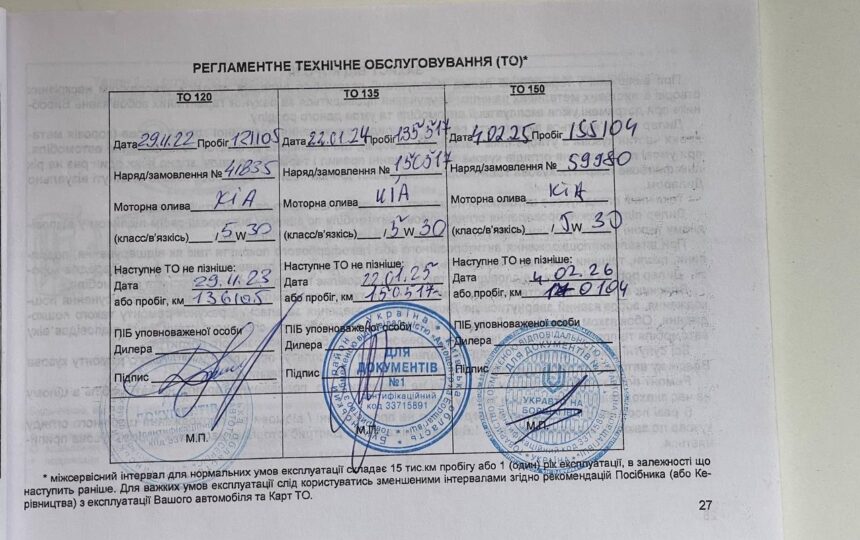 РЕГЛАМЕНТНЕ ТЕХНІЧНЕ ОБСЛУГОВУВАННЯ (ТО)*
ТО 120
Дата 29.11.22 Пробіг 121105
Наряд/замовлення № 41835
Моторна олива KIA
(класс/в'язкість) / 5 W 30
Наступне ТО не пізніше:
Дата 29.11.23
або пробіг, км 136105
ПІБ уповноваженої особи
Дилера
Підпис
М.П.
ТО 135
Дата 22.01.24 Пробіг 135517
Наряд/замовлення № 150517
Моторна олива KIA
(класс/в'язкість) / 5 W 30
Наступне ТО не пізніше:
Дата 22.01.25
або пробіг, км 150517
ПІБ уповноваженої особи
Дилера
Підпис
Україна
ДЛЯ
ДОКУМЕНТІВ
№1
Ідентифікаційний
код 33715891
М.П.
ТО 150
Дата 4.02.25 Пробіг 155104
Наряд/замовлення № 59980
Моторна олива KIA
(класс/в'язкість) / 5 W 30
Наступне ТО не пізніше:
Дата 4.02.26
або пробіг, км 0104
ПІБ уповноваженої особи
Дилера
Підпис
ДЛЯ ДОКУМЕНТІВ
М.П.
* міжсервісний інтервал для нормальних умов експлуатації складає 15 тис.км пробігу або 1 (один) рік експлуатації, в залежності що
наступить раніше. Для важких умов експлуатації слід користуватись зменшеними інтервалами згідно рекомендацій Посібника (або Ке-
рівництва) з експлуатації Вашого автомобіля та Карт ТО.
27